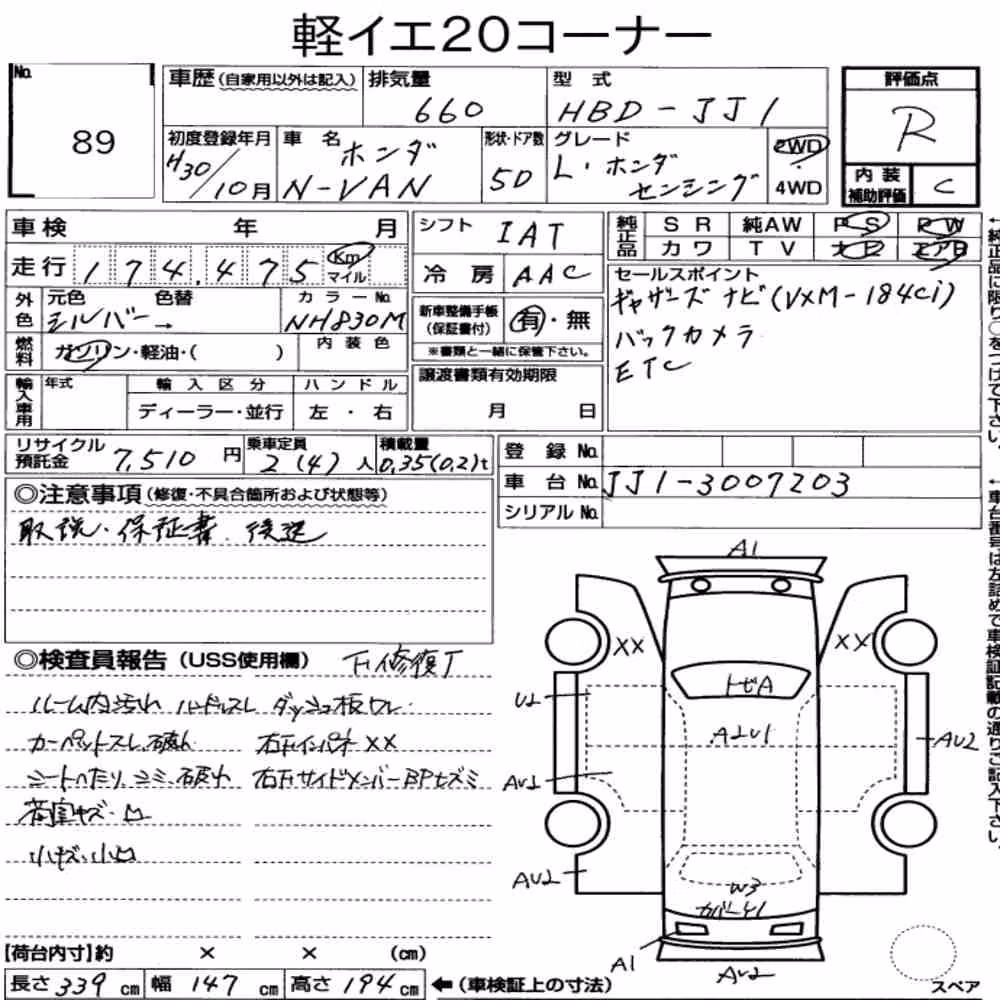 軽イエ20コーナー
No. 89
車歴(自家用以外は記入)
排気量 660
型式 HBD-JJ1
評価点 R
初度登録年月 H30/10月
車名 ホンダ N-VAN
形状・ドア数 5D
グレード L・ホンダセンシング
2WD・4WD
内装補助評価 C
車検 年 月
シフト IAT
純正品 SR 純AW PS PW
カワ TV ナビ エアB
走行 174,475 Km マイル
冷房 AAC
セールスポイント
ギャザーズナビ(VXM-184ci)
バックカメラ
ETC
外色 元色 シルバー → 色替 カラーNo. NH830M
新車整備手帳(保証書付) 有・無
※書類と一緒に保管下さい。
燃料 ガソリン・軽油・( ) 内装色
輸入車用 年式 輸入区分 ハンドル
ディーラー・並行 左・右
譲渡書類有効期限
月 日
リサイクル預託金 7,510円
乗車定員 2(4)人
積載量 0.35(0.2)t
登録No.
車台No. JJ1-3007203
シリアルNo.
←純正品に限り○をつけて下さい。
←車台番号は左詰めで車検証記載の通りご記入下さい。
◎注意事項(修復・不具合箇所および状態等)
取説、保証書、後送
◎検査員報告(USS使用欄) 下廻修復有
ルーム内汚れ ハンドルスレ ダッシュ板ワレ
カーペットスレ、破れ 右Fインパネ××
シートへたり、シミ、破れ 右FサイドメンバーBPヒズミ
荷室キズ・凹
小キズ、小凹
A1
XX
XX
U2
トビA
A2U1
AU2
AU2
AU2
W3
カバーY1
A1
AU2
【荷台内寸】約 × × (cm)
長さ 339cm 幅 147cm 高さ 194cm ←(車検証上の寸法)
スペア